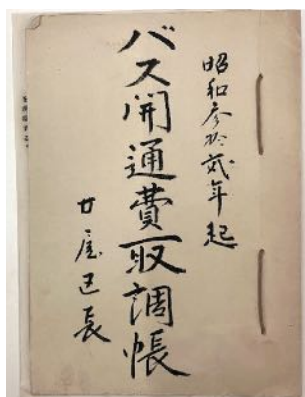 昭和参拾弐年起
バス開通費取調帳
廿屋区長